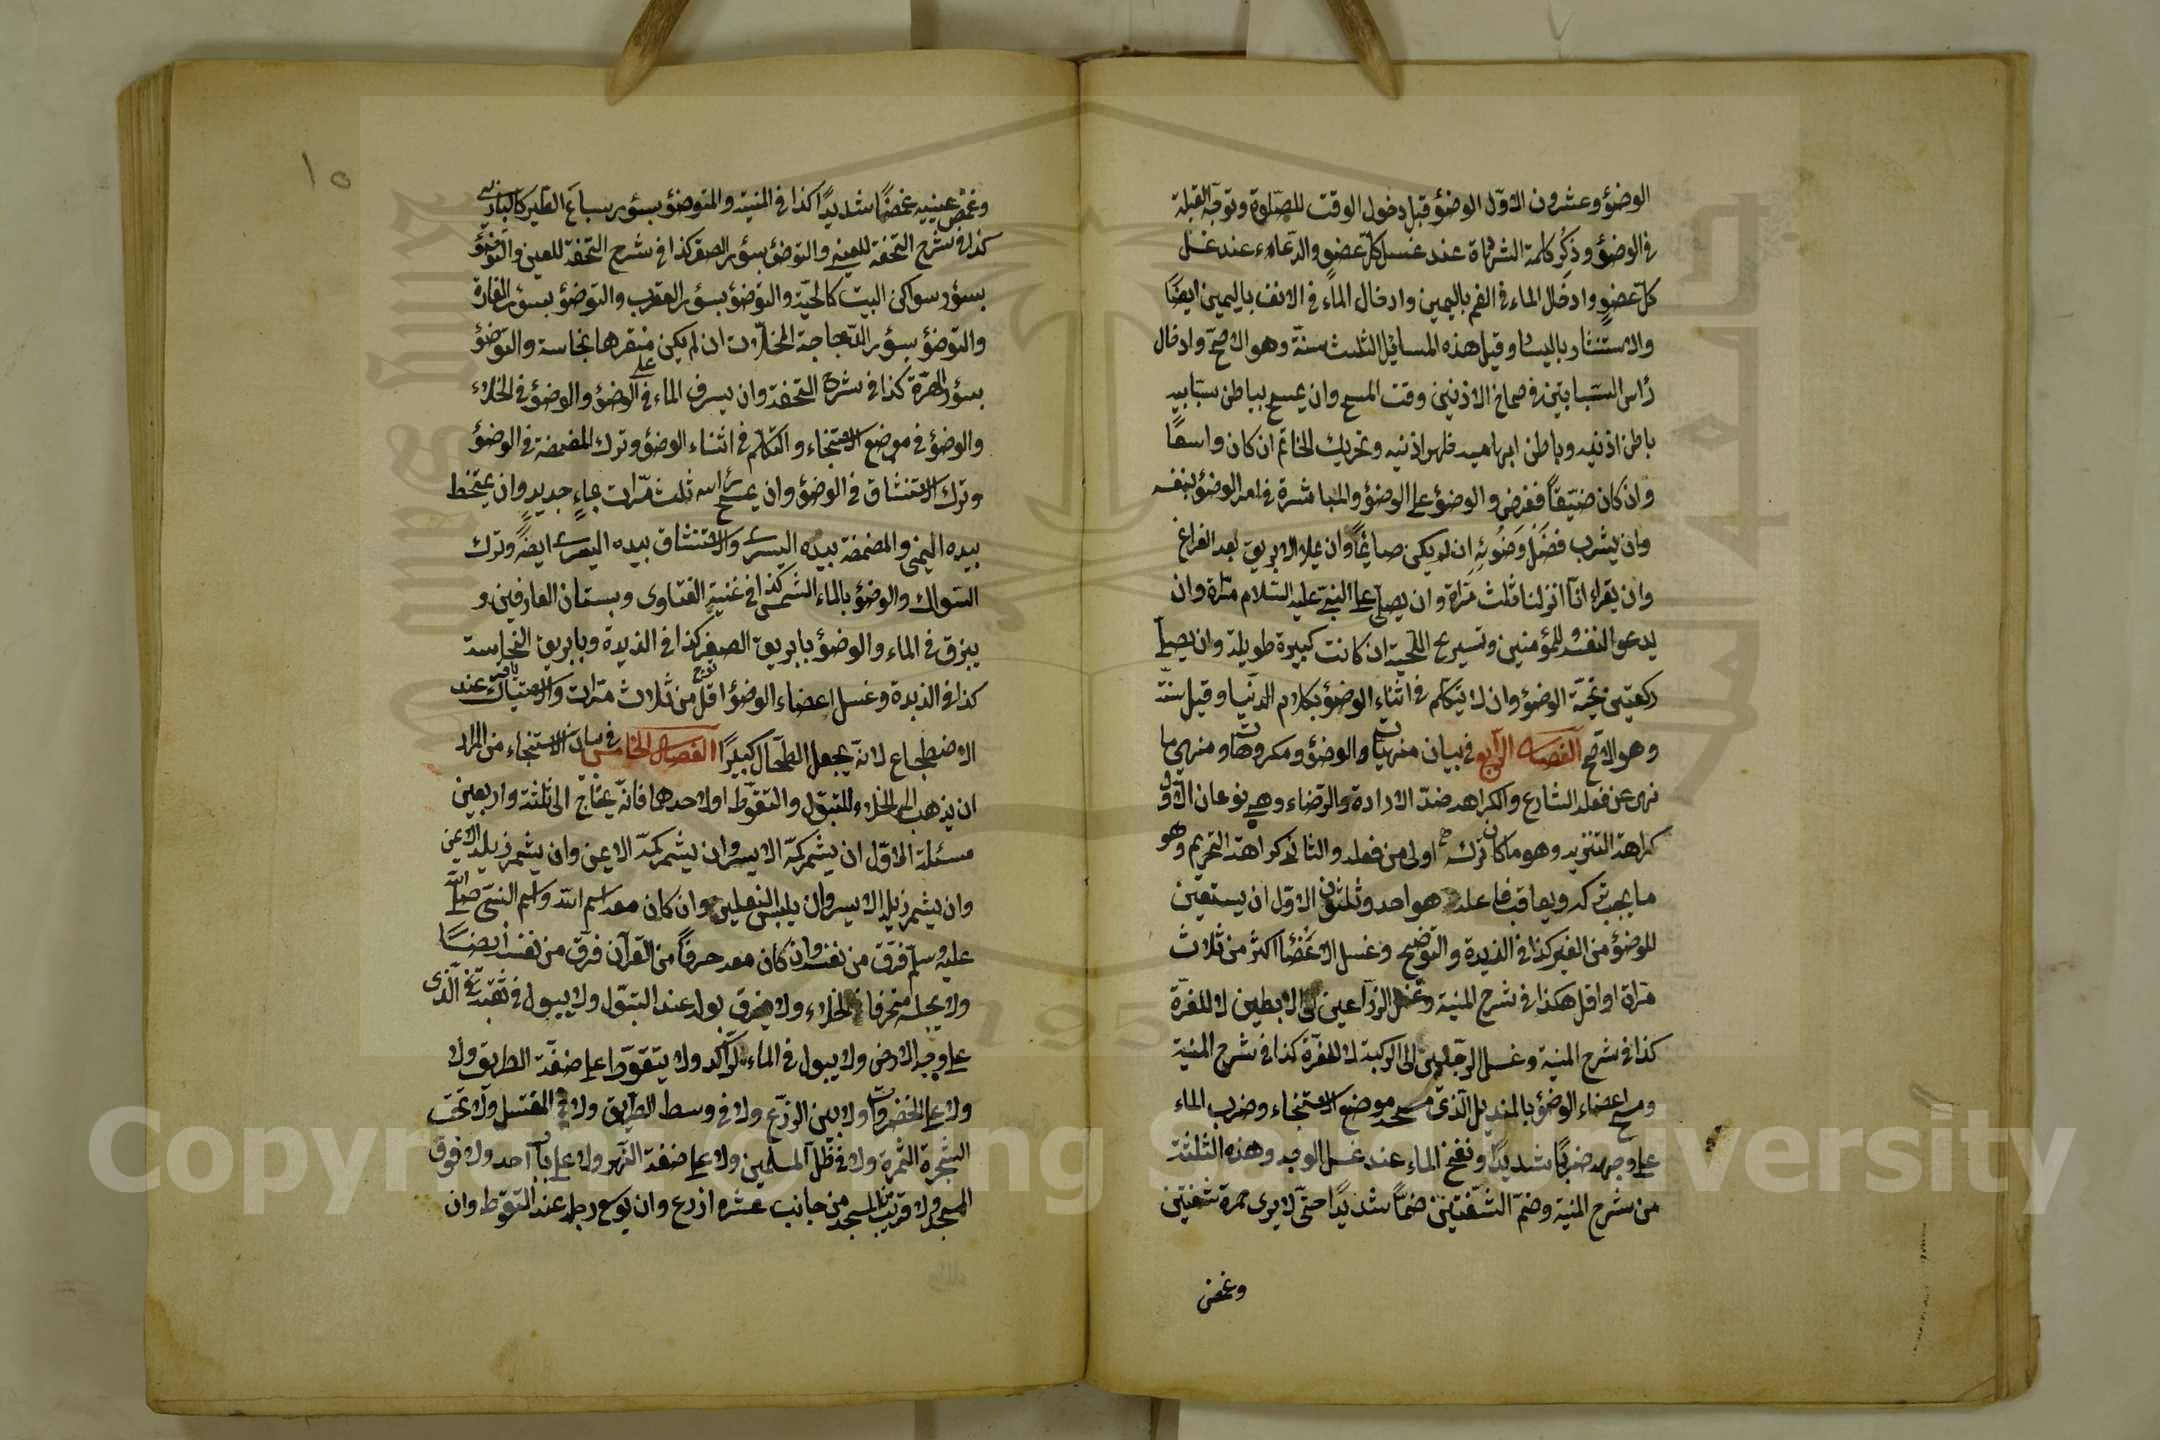 الوضوء وعشرون الاول الوضوء قبل دخول الوقت للصلوة وتوجه القبلة
فى الوضوء وذكر كلمة الشهادة عند غسل كل عضو والدعاء عند غسل
كل عضو وادخال الماء فى الفم باليمين وادخال الماء فى الانف باليمين ايضا
والاستنثار باليسار وقيل هذه المسائل الثلث سنة وهو الاصح وادخال
رأس السبابتين فى صماخ الاذنين وقت المسح وان يمسح بباطن سبابيه
باطن اذنيه وباطن ابهاميه ظهر اذنيه وتحريك الخاتم ان كان واسعا
وان كان ضيقا ففرض والوضوء على الوضوء والمباشرة فى امر الوضوء بنفسه
وان يشرب فضل وضوئه ان لم يكن صايما وان يملا الابريق بعد الفراغ
وان يقراء انا انزلنا ثلث مراة وان يصلى على النبى عليه السلام مرة وان
يدعو النفسه للمؤمنين وتسريح اللحية ان كانت كبيرة طويلة وان يصلى
ركعتين تحية الوضوء وان لا يتكلم فى اثناء الوضوء بكلام الدنيا وقيل سنة
وهو الاصح الفصل الرابع فى بيان منهيات الوضوء ومكروهات ومنهى ما
نهى عن فعله الشارع والكراهة ضد الارادة والرضاء وهى نوعان الاول
كراهة التنزيه وهو ما كان تركه اولى من فعله والثانى كراهة التحريم وهو
ما يجب تركه ويعاقب فاعله هو احد وثلثون الاول ان يستعين
للوضوء من الغير كذا فى الذبدة والتوضيح وغسل الاعضاء اكثر من ثلاث
مراة او اقل هكذا فى شرح المنية وغسل الذراعين الى الابطين لا للغرة
كذا فى شرح المنية وغسل الرجلين الى الركبة لا للغرة كذا فى شرح المنية
ومسح اعضاء الوضوء بالمنديل الذى مسح موضع الاستنجاء وضرب الماء
على وجهه ضربا شديدا ونفخ الماء عند غسل الوجه وهذه الثلثة
من شرح المنية وضم الشفتين ضما شديدا حتى لا يرى حمرة شفتين
وغمض
١٥
وغمض عينيه غمضا شديدا كذا فى المنية والتوضؤ بسؤر سباع الطير كالبازى
كذا فى شرح التحفة للعينى والتوضؤ بسؤر الصقر كذا فى شرح التحفة للعينى والتوضؤ
بسؤر سواكن البيت كالحية والتوضؤ بسؤر العقرب والتوضؤ بسؤر الفارة
والتوضؤ بسؤر الدجاجة المخلات ان لم يكن منقرها نجاسة والتوضؤ
بسؤر الهرة كذا فى شرح التحفة وان يسرف الماء فى الوضوء والوضوء فى الخلاء
والوضوء فى موضع الاستنجاء والتكلم فى اثناء الوضوء وترك المضمضة فى الوضوء
وترك الاستنشاق فى الوضوء وان يمسح رأسه ثلث مرات بماء جديد وان يمتخط
بيده اليمنى والمضمضة بيده اليسرى والاستنشاق بيده اليسرى ايضا وترك
السواك والوضوء بالماء الشمس كذا فى غنية الفتاوى وبستان العارفين و
يبزق فى الماء والوضوء بابريق الصفر كذا فى الذبدة وبابريق النحاسة
كذا فى الذبدة وغسل اعضاء الوضوء اقل من ثلاث مرات والاستياك عند
الاضطجاع لانه يجعل الطحال كبيرا الفصل الخامس فى بيان الاستنجاء من اراد
ان يذهب الى الخلاء للتبول والتغوط او لاحدهما فانه يحتاج الى ثلثة واربعين
مسئلة الاول ان يشمر كمه الايسر وان يشمر كمه الايمن وان يشمر زيله الايمن
وان يشمر زيله الايسر وان يلبس النعلين وان كان معه اسم الله واسم النبى صلى الله
عليه وسلم فرق من نفسه وان كان معه حرفا من القرآن فرق من نفسه ايضا
ولا يجلس منحرفا فى الخلاء ولا يفرق بوله عند التبول ولا يبول فى ثقبة الذى
على وجه الارض ولا يبول فى الماء الراكد ولا يتغوط على ضفة الطريق ولا
ولا على الخضروات ولا بين الزرع ولا فى وسط الطريق ولا فى المغتسل ولا تحت
الشجرة الثمرة ولا فى ظل المسلمين ولا على ضفة النهر ولا على باب احد ولا فوق
المسجد ولا قريب المسجد من جانب عشره اذرع وان يوسع رجله عند التغوط وان
Copyright © King Saud University
جامعة الملك سعود
King Saud University
1957